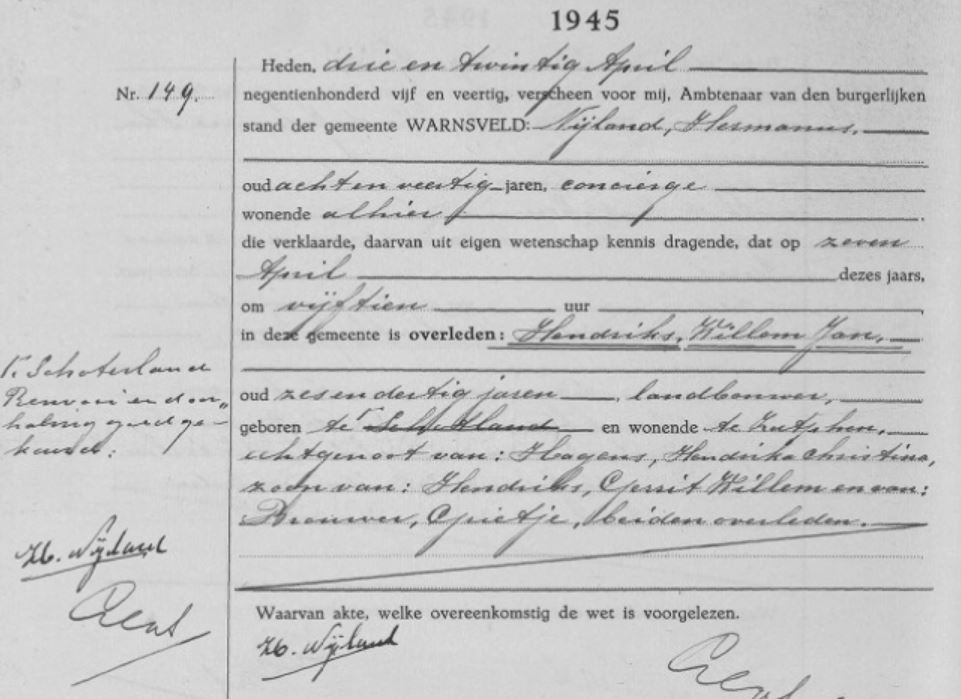 1945
Heden, drie en twintig April
Nr. 149.
negentienhonderd vijf en veertig, verscheen voor mij, Ambtenaar van den burgerlijken
stand der gemeente WARNSVELD: Nijland, Hermanus,
oud acht en veertig jaren, conciërge
wonende alhier,
die verklaarde, daarvan uit eigen wetenschap kennis dragende, dat op zeven
April dezes jaars,
om vijftien uur
in deze gemeente is overleden: Hendriks, Willem Jan,
oud zesendertig jaren, landbouwer,
geboren te Schotland en wonende te Zutphen,
echtgenoot van: Hagens, Hendrika Christina,
zoon van: Hendriks, Gerrit Willem en van:
Brouwer, Grietje, beiden overleden.
Γ Schoterland
Renvooi en door„
haling goedge-
keurd:
H. Nijland
Waarvan akte, welke overeenkomstig de wet is voorgelezen.
H. Nijland